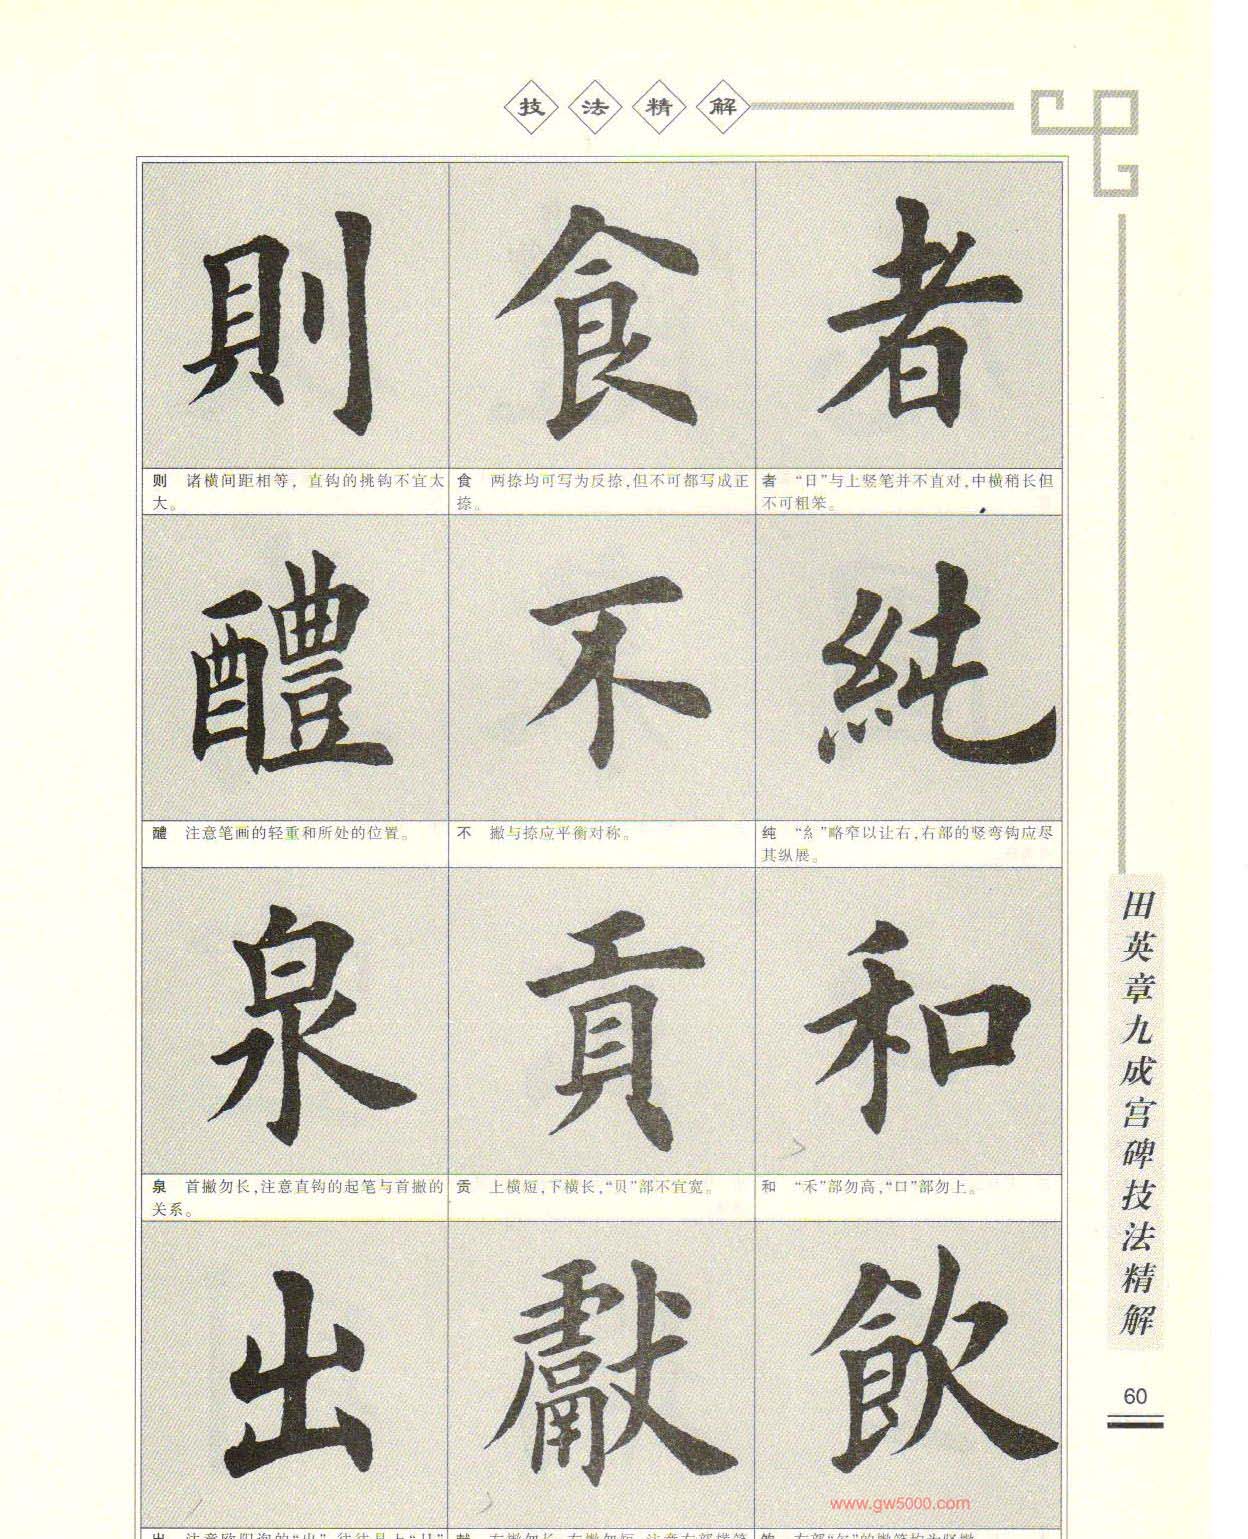 技法精解
則 食 者
则 诸横间距相等，直钩的挑钩不宜太
大。
食 两捺均可写为反捺，但不可都写成正
捺。
者 “日”与上竖笔并不直对，中横稍长但
不可粗笨。
醴 不 純
醴 注意笔画的轻重和所处的位置。
不 撇与捺应平衡对称。
纯 “糹”略窄以让右，右部的竖弯钩应尽
其纵展。
泉 貢 和
泉 首撇勿长，注意直钩的起笔与首撇的
关系。
贡 上横短，下横长，“贝”部不宜宽。
和 “禾”部勿高，“口”部勿上。
出 獻 飲
www.gw5000.com
田英章九成宫碑技法精解
60